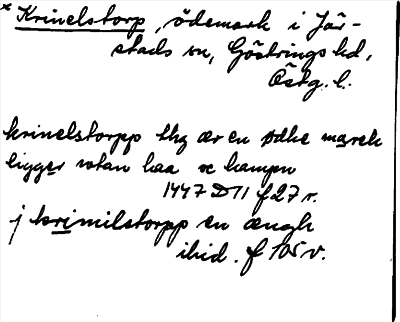 * Krinelstorp, ödemark i Jär-
stads sn, Göstrings hd,
Östg. l.
krinelstorpp thz ær en ødhe march
ligger vtan laa se kampn
1447 D 11 f 27 r.
j krimilstorpp en ængh
ibid. f 105 v.